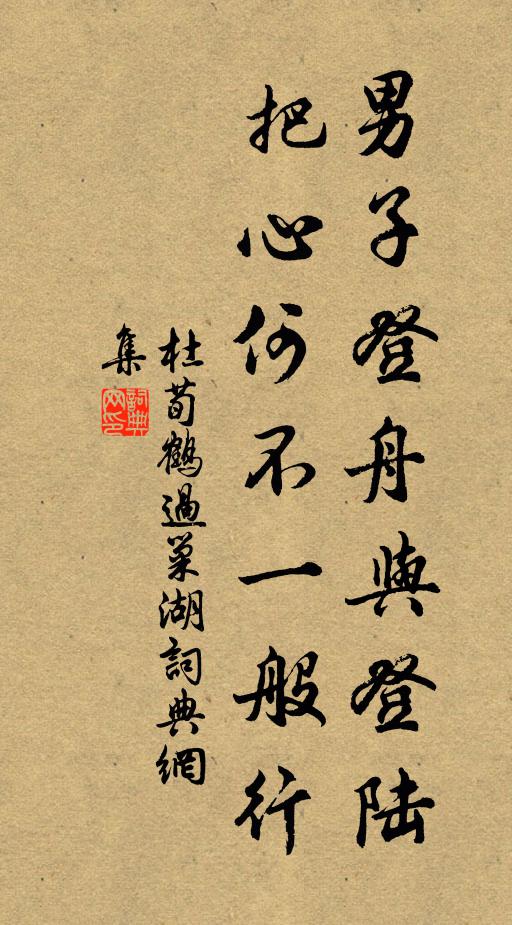 男子登舟與登陆
把心何不一般行
杜荀鶴過巢湖詞典網
集
詞典
网印